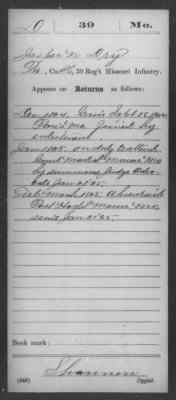 D 39 Mo.
Jasper N. Dry
Co. 39 Reg't Missouri Infantry.
Appears on
Returns as follows:
Dec 1864. Gain Sept 1864
Mo. Joined by
enlistment.
Jan 1865. on duty to attend
Court Martial Macon Mo
by summons Judge Advo-
cate Jan 1865.
Feb & Mar 1865. Absent sick
Post Hosp'l Macon Mo
since Jan 31 65.
Book mark:
Shannon
(546) Copyist.